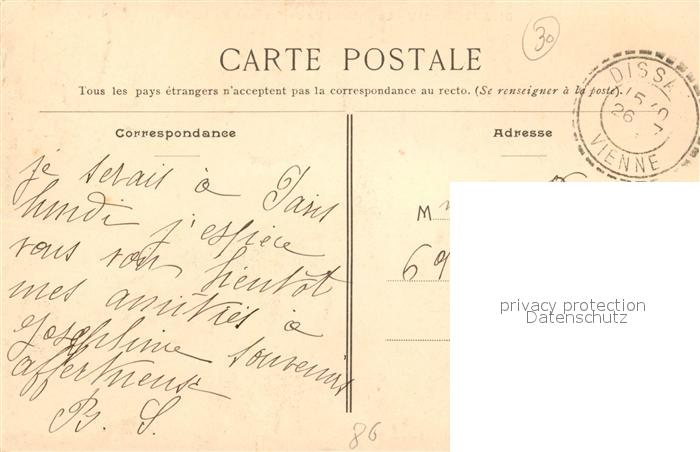 30
CARTE POSTALE
Tous les pays étrangers n'acceptent pas la correspondance au recto. (Se renseigner à la poste).
DISSA
15
26
VIENNE
Correspondance
je serais à Paris
lundi j'espère
vous voir bientôt
mes amitiés à
Joséphine souvenirs
affectueux
B. S.
Adresse
M
69
privacy protection
Datenschutz
86